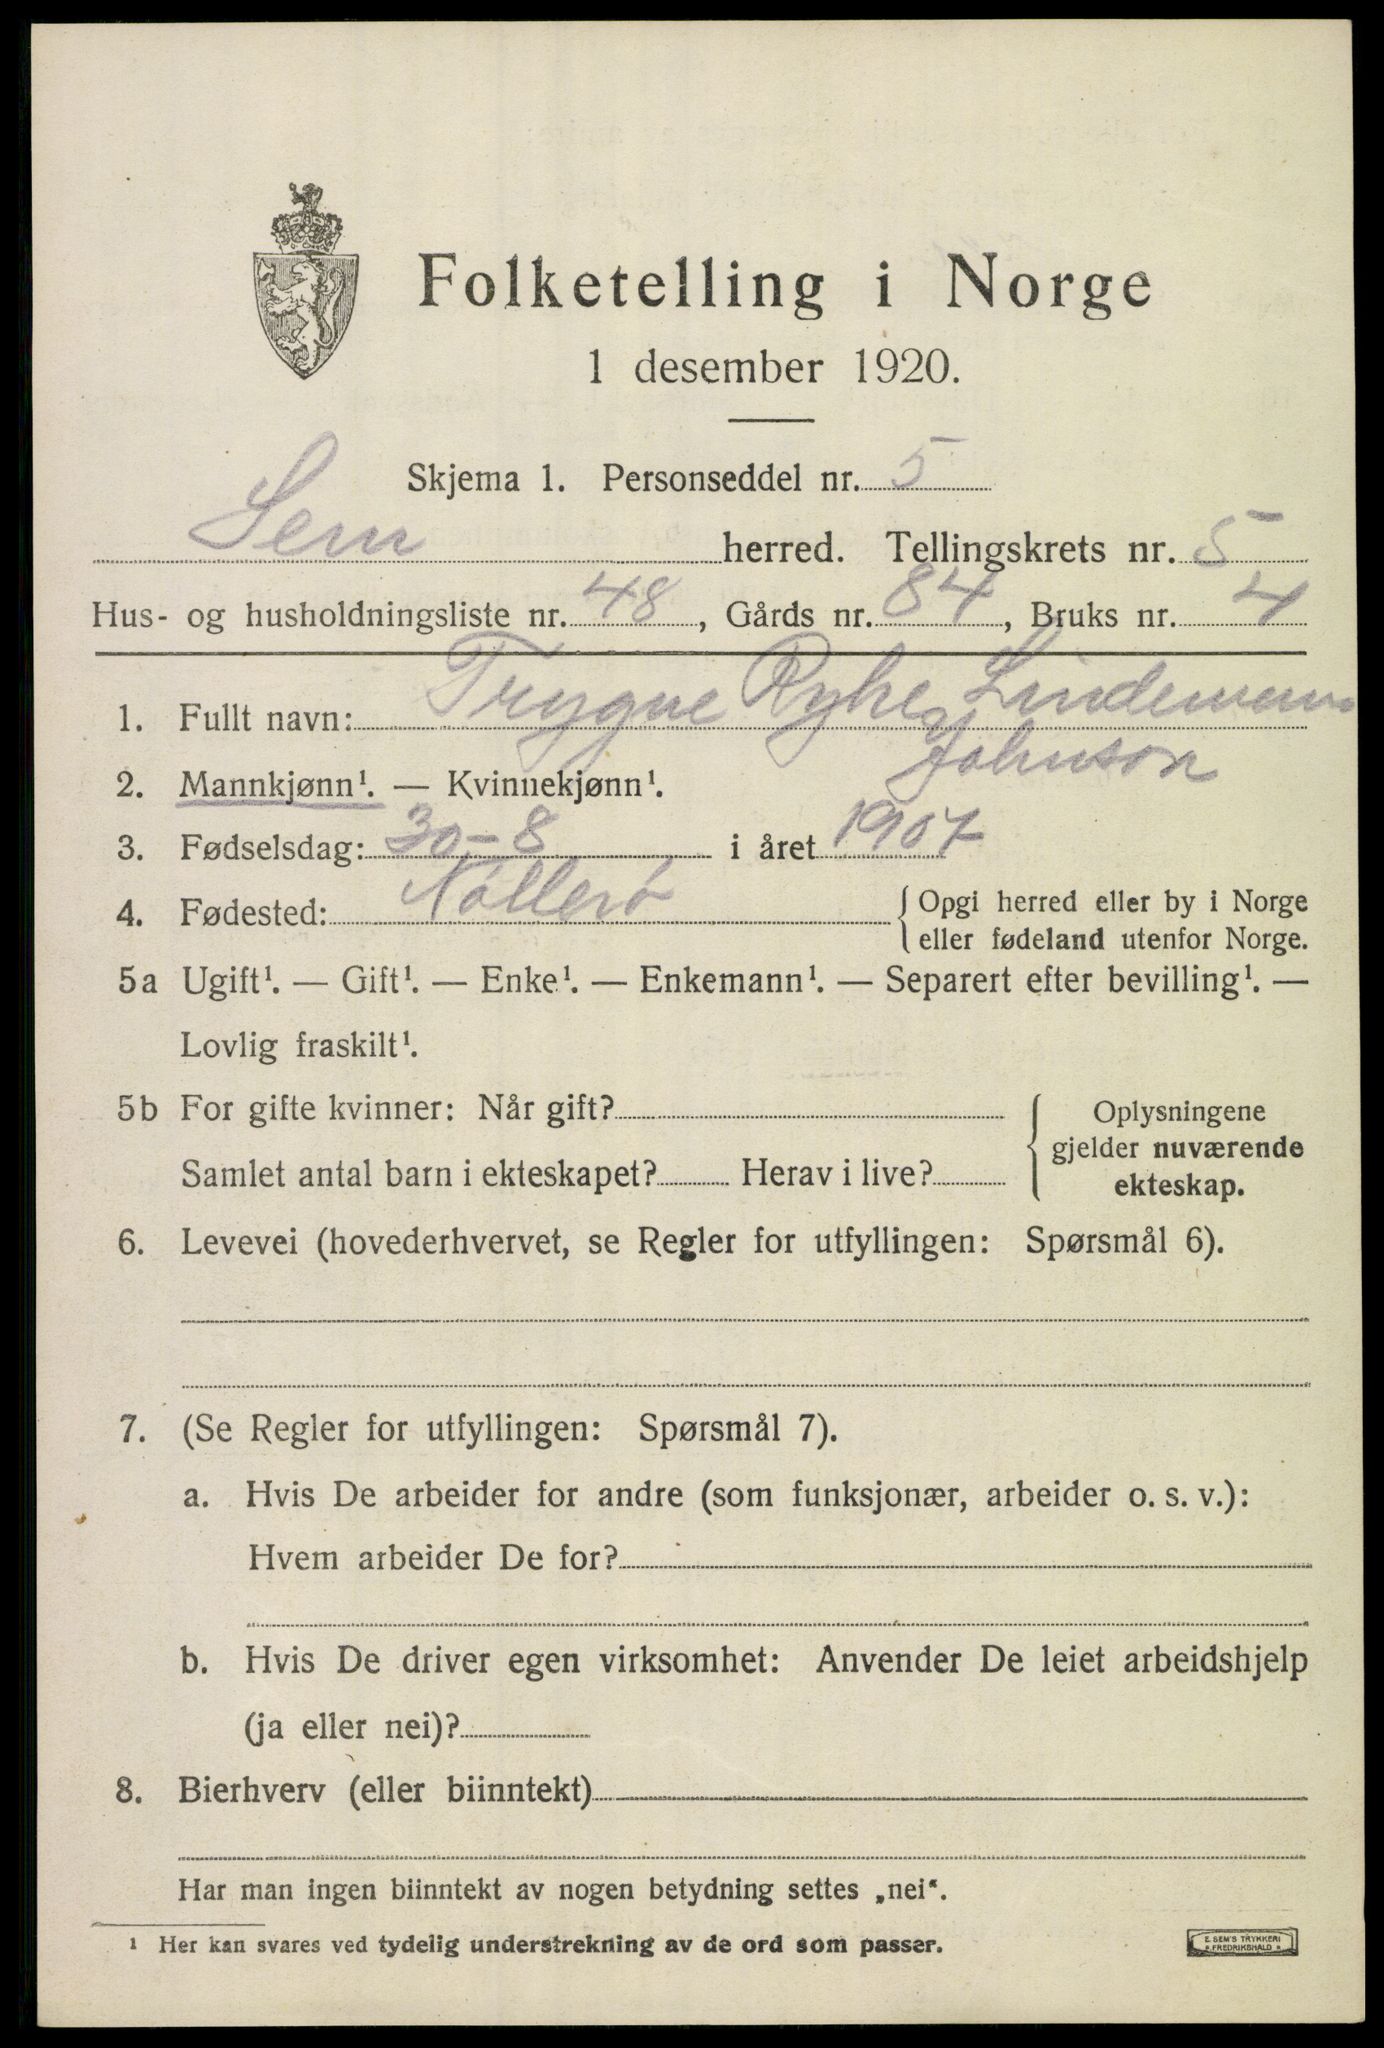 Folketelling i Norge
1 desember 1920.
Skjema 1. Personseddel nr. 5
Sem herred. Tellingskrets nr. 5
Hus- og husholdningsliste nr. 48, Gårds nr. 84, Bruks nr. 4
1. Fullt navn: Trygve Lindemann
Johnson
2. Mannkjønn¹. — Kvinnekjønn¹.
3. Fødselsdag: 30-8 i året 1907
4. Fødested: Nøtterö { Opgi herred eller by i Norge
eller fødeland utenfor Norge.
5a Ugift¹. — Gift¹. — Enke¹. — Enkemann¹. — Separert efter bevilling¹. —
Lovlig fraskilt¹.
5b For gifte kvinner: Når gift? { Oplysningene
gjelder nuværende
Samlet antal barn i ekteskapet? Herav i live? ekteskap.
6. Levevei (hovederhvervet, se Regler for utfyllingen: Spørsmål 6).
7. (Se Regler for utfyllingen: Spørsmål 7).
a. Hvis De arbeider for andre (som funksjonær, arbeider o. s. v.):
Hvem arbeider De for?
b. Hvis De driver egen virksomhet: Anvender De leiet arbeidshjelp
(ja eller nei)?
8. Bierhverv (eller biinntekt)
Har man ingen biinntekt av nogen betydning settes „nei“.
¹ Her kan svares ved tydelig understrekning av de ord som passer.
E. SEM'S TRYKKERI
FREDRIKSHALD